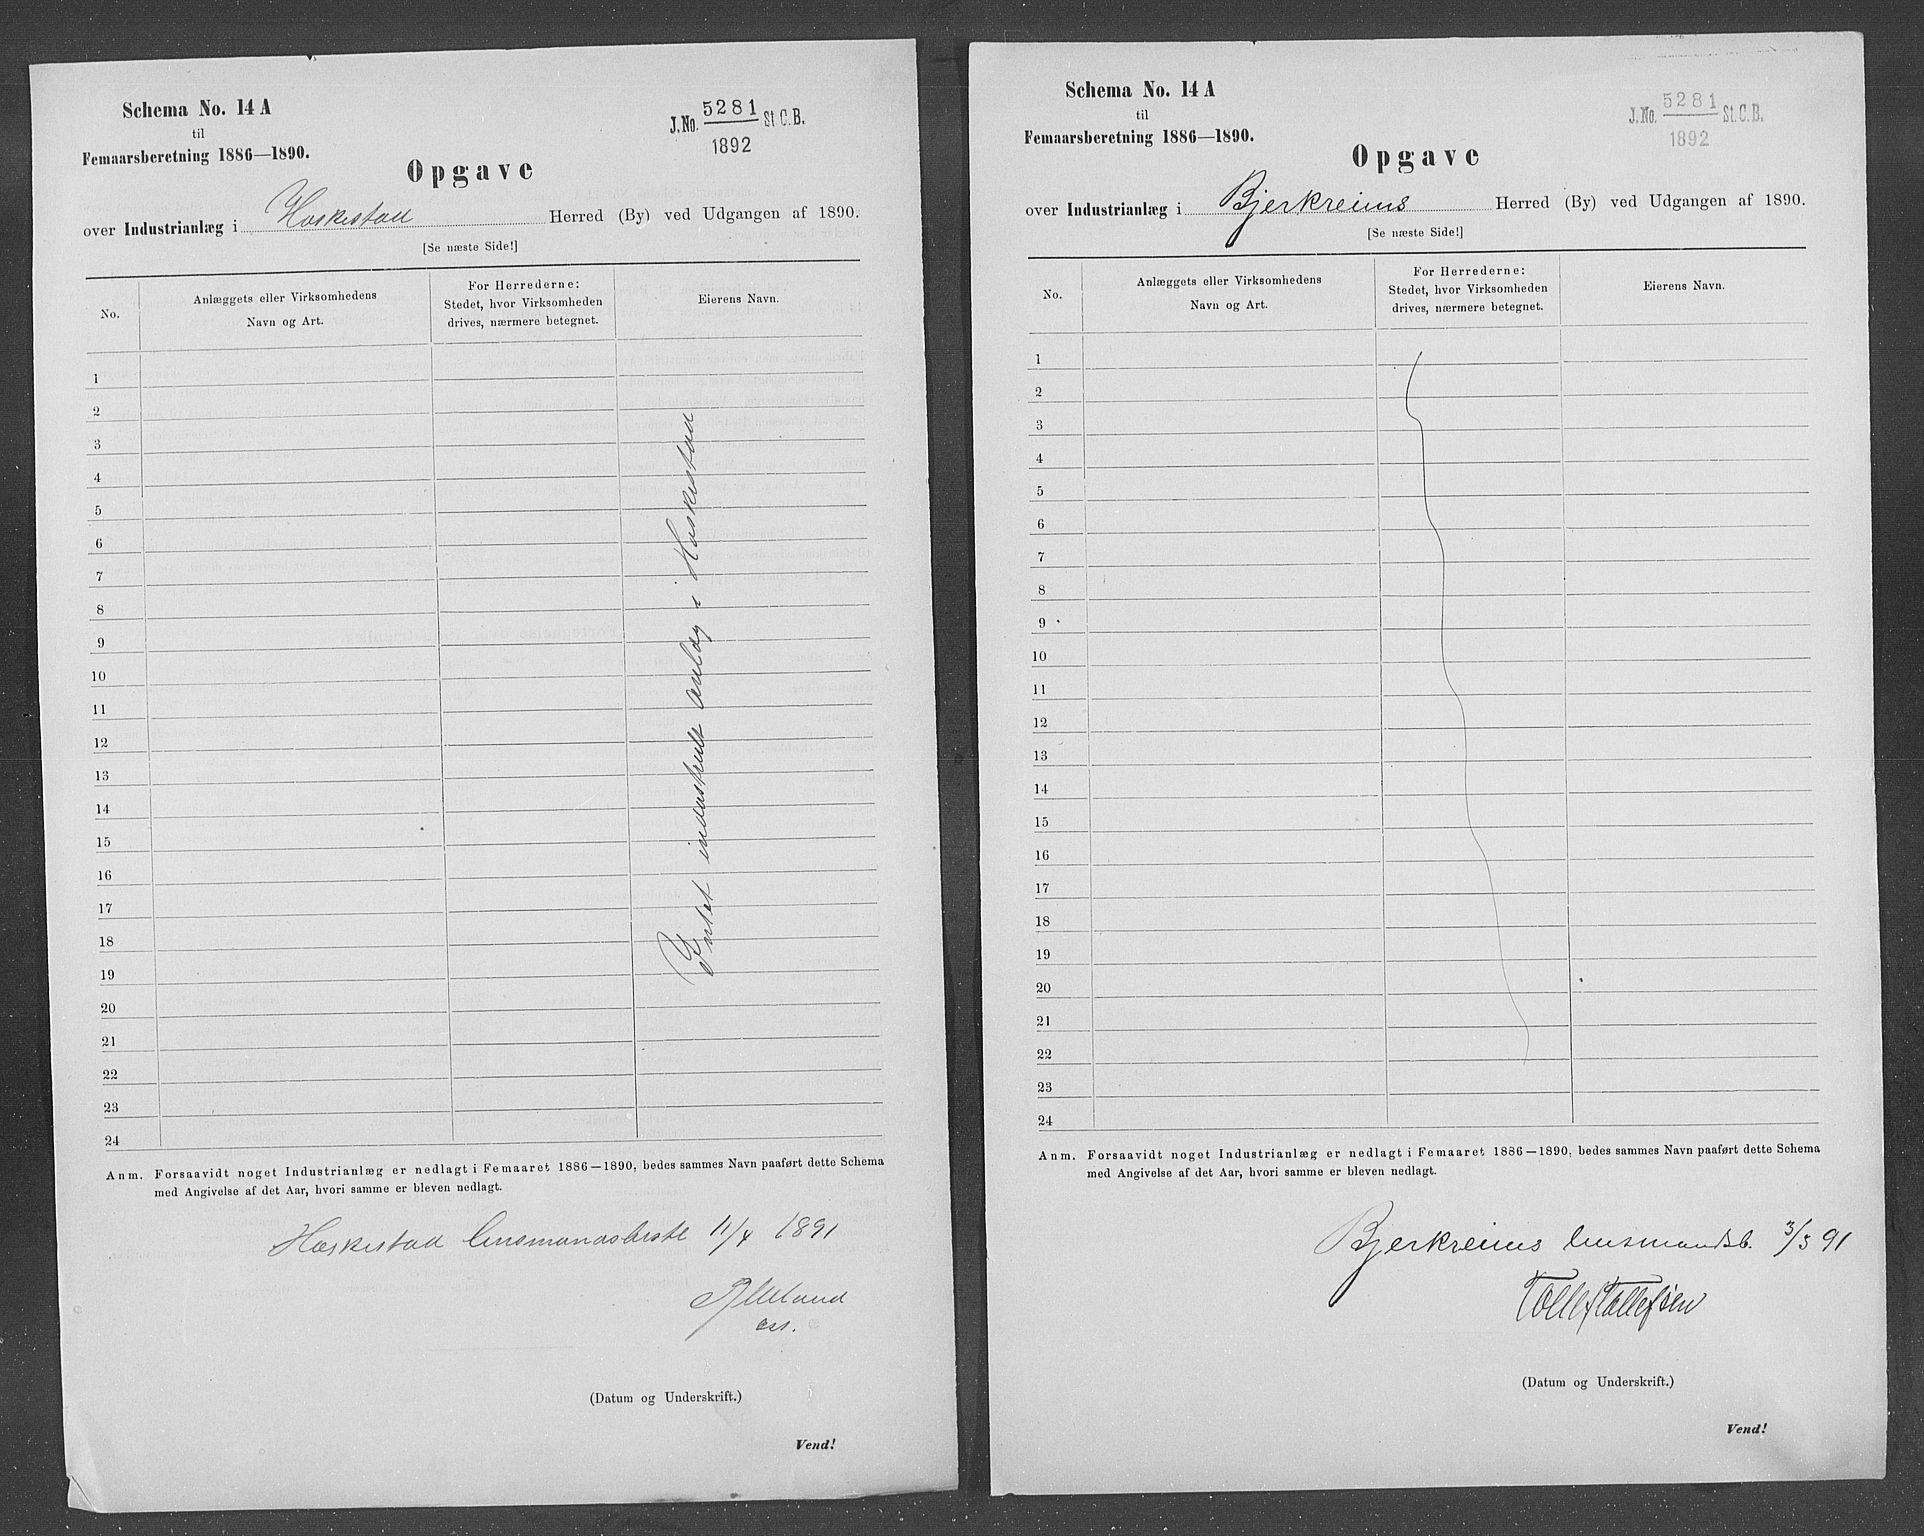 Schema No. 14 A
til
Femaarsberetning 1886—1890.
J.No. 5281 St.C.B.
1892
Opgave
over Industrianlæg i Heskestad Herred (By) ved Udgangen af 1890.
[Se næste Side!]
No.
Anlæggets eller Virksomhedens
Navn og Art.
For Herrederne:
Stedet, hvor Virksomheden
drives, nærmere betegnet.
Eierens Navn.
1
2
3
4
5
6
7
8
9
10
11
12
13
14
15
16
17
18
19
20
21
22
23
24
Intet industrielt anlæg i Heskestad
Anm. Forsaavidt noget Industrianlæg er nedlagt i Femaaret 1886—1890, bedes sammes Navn paaført dette Schema
med Angivelse af det Aar, hvori samme er bleven nedlagt.
Heskestad lensmandsbestl 11/4 1891
ass.
(Datum og Underskrift.)
Vend!
Schema No. 14 A
til
Femaarsberetning 1886—1890.
J.No. 5281 St.C.B.
1892
Opgave
over Industrianlæg i Bjerkreims Herred (By) ved Udgangen af 1890.
[Se næste Side!]
No.
Anlæggets eller Virksomhedens
Navn og Art.
For Herrederne:
Stedet, hvor Virksomheden
drives, nærmere betegnet.
Eierens Navn.
1
2
3
4
5
6
7
8
9
10
11
12
13
14
15
16
17
18
19
20
21
22
23
24
Anm. Forsaavidt noget Industrianlæg er nedlagt i Femaaret 1886—1890, bedes sammes Navn paaført dette Schema
med Angivelse af det Aar, hvori samme er bleven nedlagt.
Bjerkreims lensmandsb. 3/3 91
Tollef Tollefsen
(Datum og Underskrift.)
Vend!